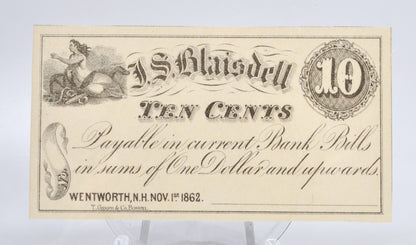 J.S. Blaisdell
10
TEN CENTS
Payable in current Bank Bills
in sums of One Dollar and upwards.
WENTWORTH, N.H. NOV. 1ST 1862.